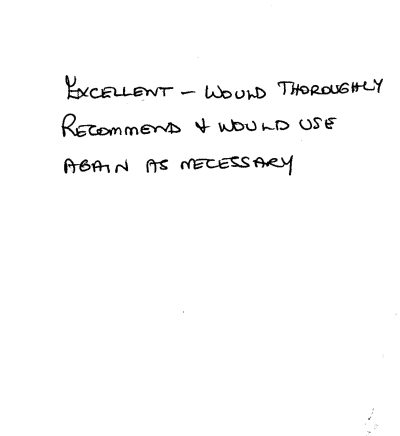 EXCELLENT – WOULD THOROUGHLY
RECOMMEND & WOULD USE
AGAIN AS NECESSARY